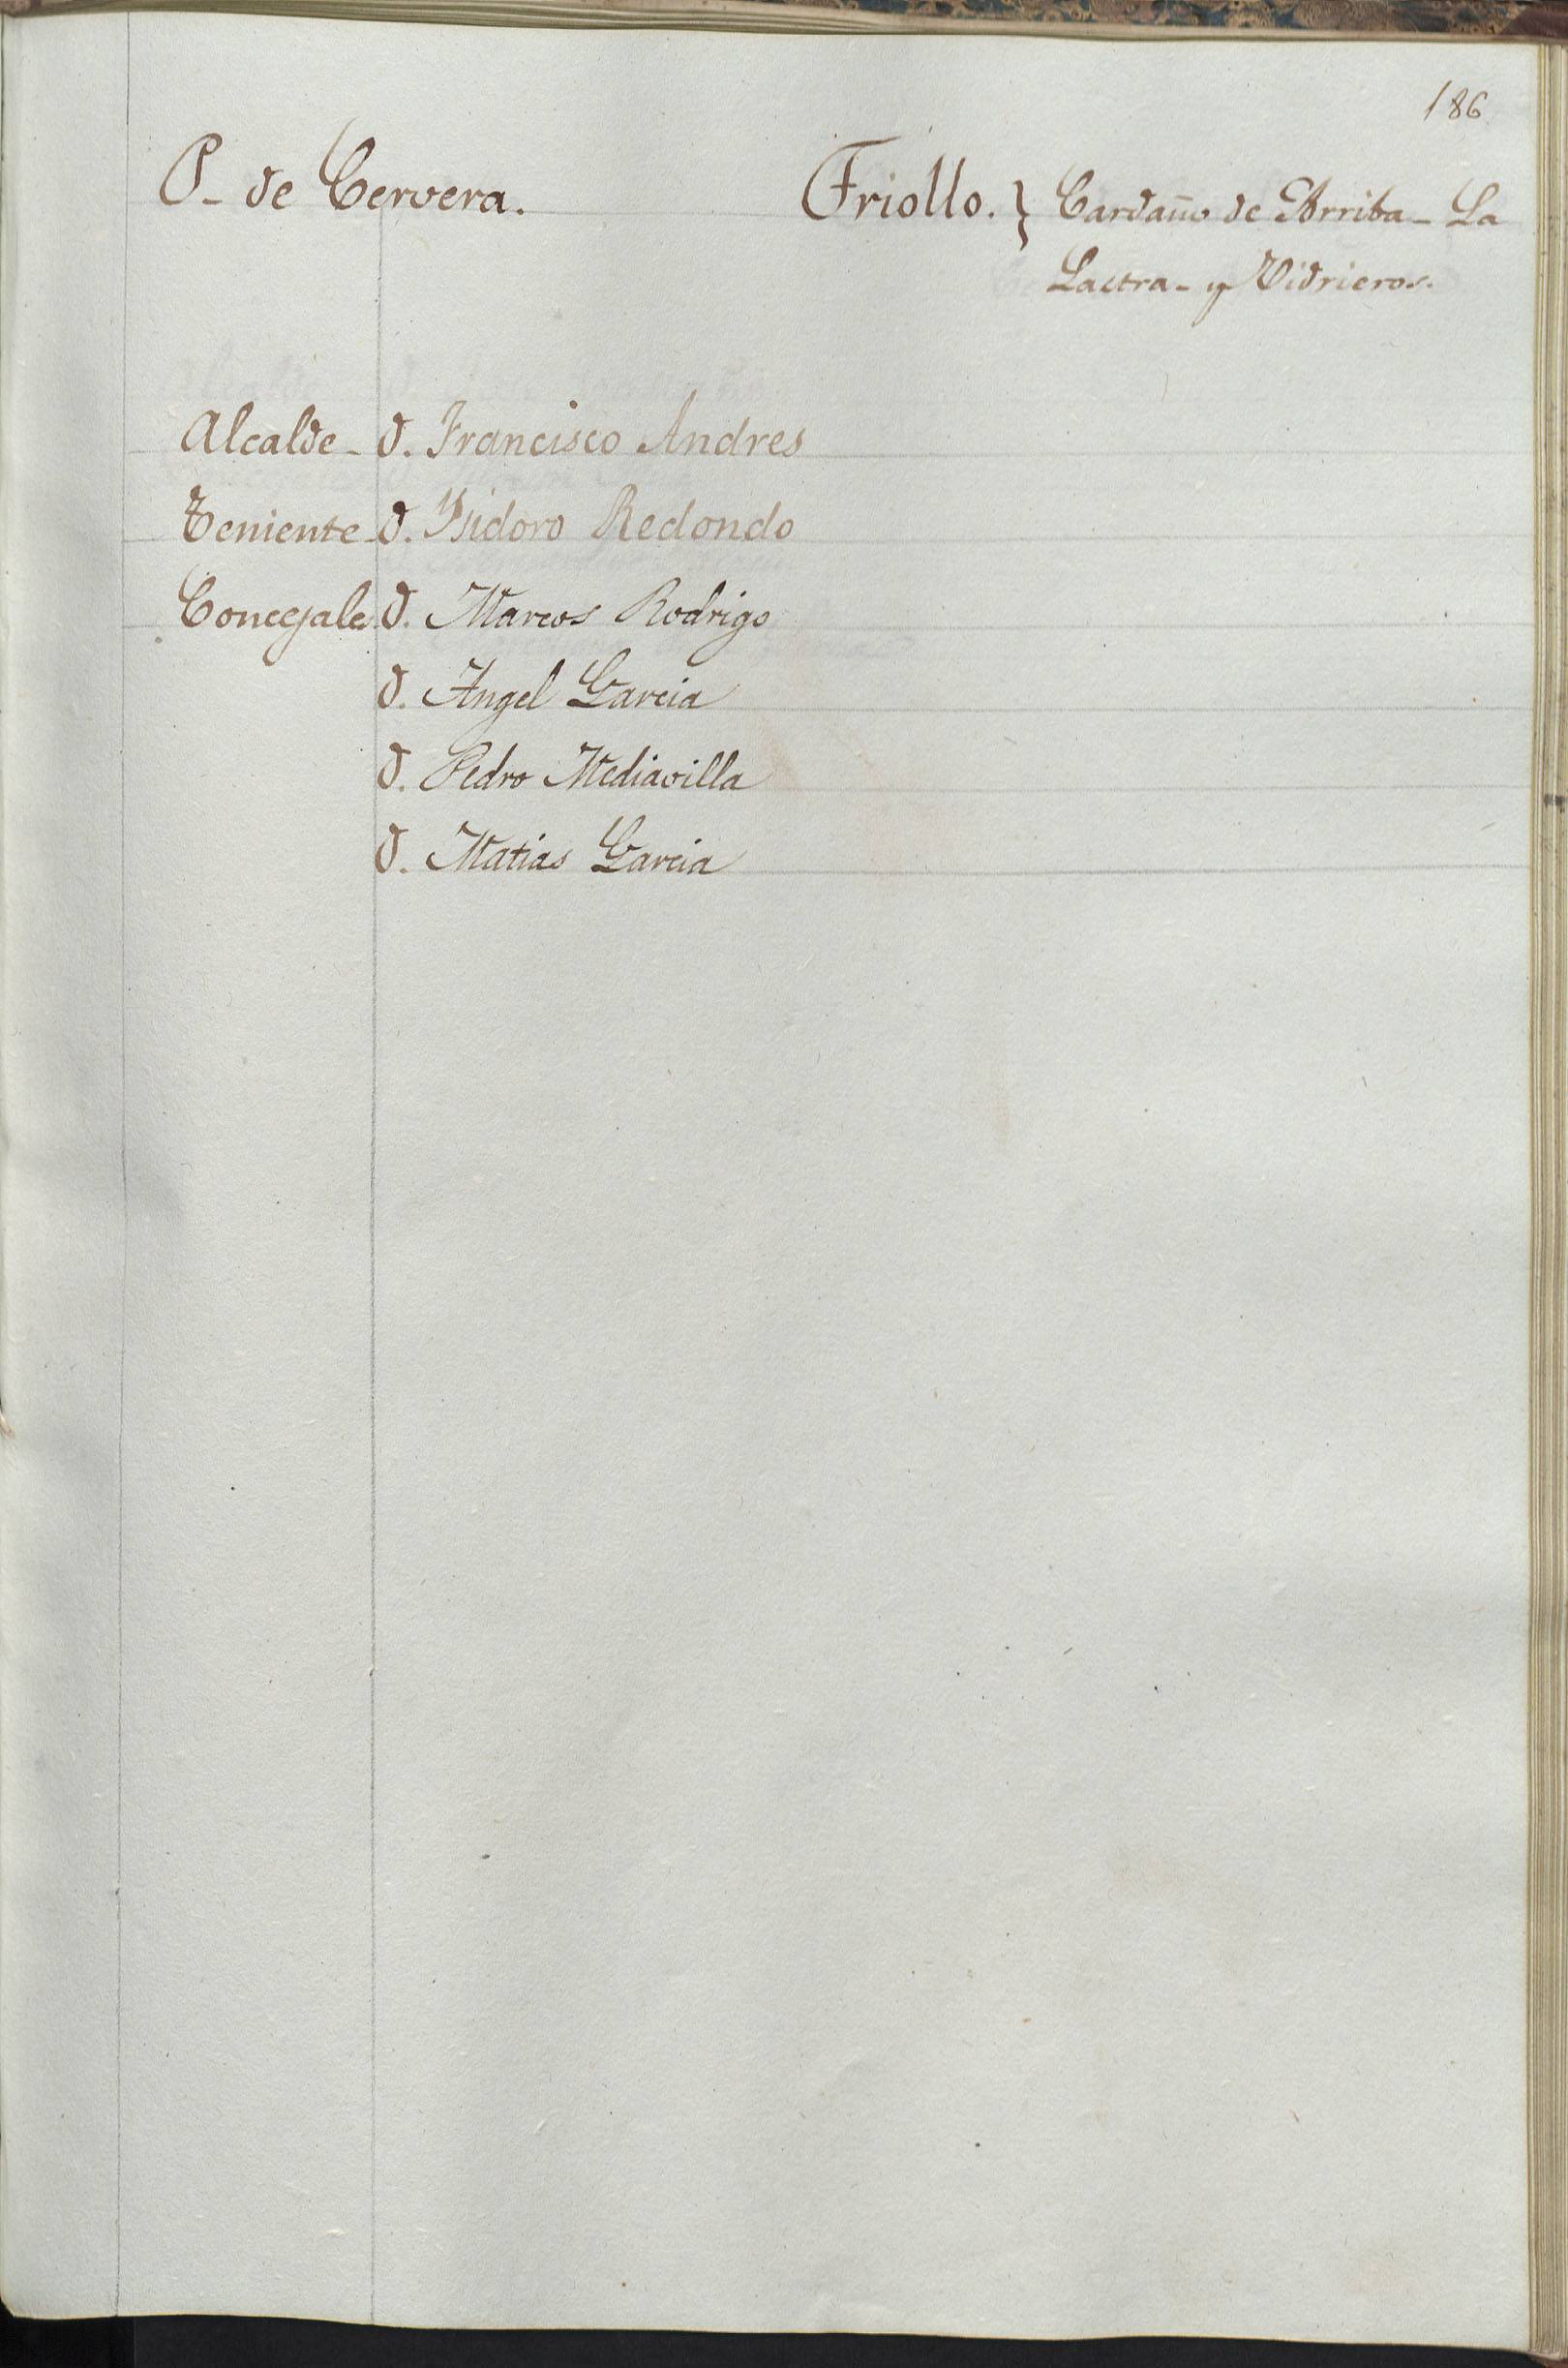 186
P- de Cervera. Triollo. } Cardaño de Arriba - La
Lastra - y Vidrieros.
Alcalde - D. Francisco Andres
Teniente - D. Ysidoro Redondo
Concejales D. Marcos Rodrigo
D. Angel Garcia
D. Pedro Mediavilla
D. Matias Garcia